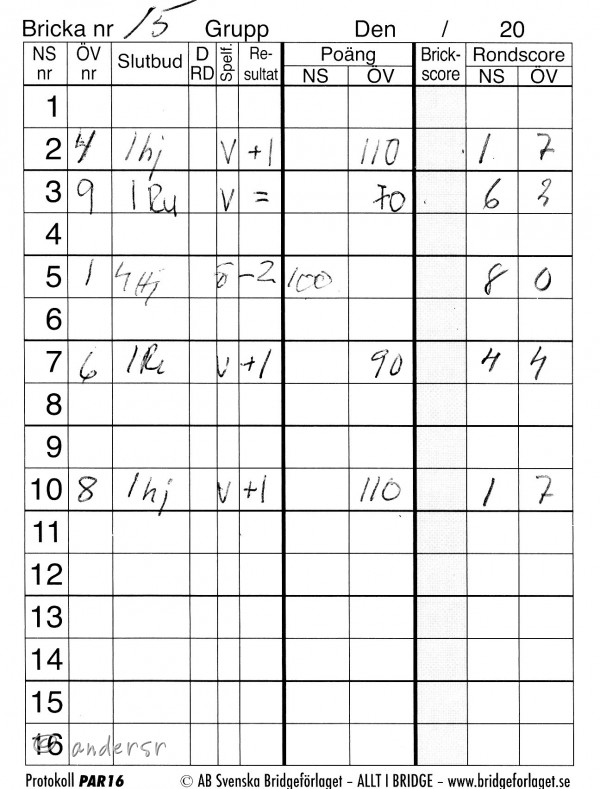 Bricka nr 15 Grupp Den / 20
NS nr ÖV nr Slutbud D RD Spelf. Resultat Poäng NS ÖV Brickscore Rondscore NS ÖV
1
2 4 1hj V +1 110 1 7
3 9 1Ru V = 70 6 2
4
5 1 4Hj ö -2 100 8 0
6
7 6 1Ru V +1 90 4 4
8
9
10 8 1hj V +1 110 1 7
11
12
13
14
15
16 andersr
Protokoll PAR16 © AB Svenska Bridgeförlaget – ALLT I BRIDGE – www.bridgeforlaget.se